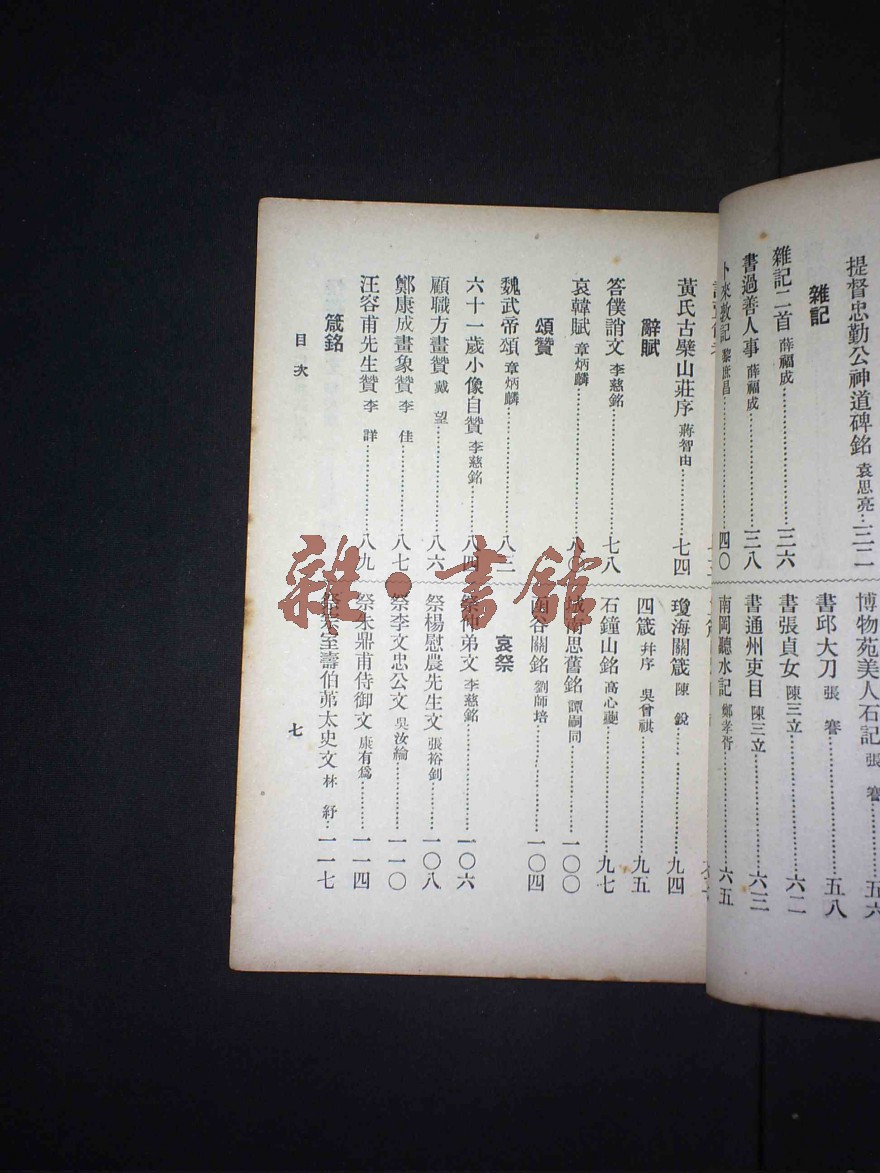 提督忠勤公神道碑銘 袁思亮…一三二
雜記
雜記二首 薛福成…一三六
書過善人事 薛福成…一三八
卜來敦記 黎庶昌…四〇
博物苑美人石記 張 謇…五六
書邱大刀 張 謇…五八
書張貞女 陳三立…六二
書通州吏目 陳三立…六三
南岡聽水記 鄭孝胥…六五
黃氏古檗山莊序 蔣智由…七四
辭賦
答僕誚文 李慈銘…七八
哀韓賦 章炳麟…八〇
頌贊
魏武帝頌 章炳麟…八三
六十一歲小像自贊 李慈銘…八四
顧職方畫贊 戴 望…八六
鄭康成畫象贊 李 佳…八七
汪容甫先生贊 李 詳…八九
箴銘
瓊海關箴 陳 銳…九四
四箴 幷序 吳曾祺…九五
石鐘山銘 高心夔…九七
思舊銘 譚嗣同…一〇〇
函谷關銘 劉師培…一〇四
哀祭
祭仲弟文 李慈銘…一〇六
祭楊慰農先生文 張裕釗…一〇八
祭李文忠公文 吳汝綸…一一〇
祭朱鼎甫侍御文 康有爲…一一四
祭宗室壽伯茀太史文 林 紓…一一七
目次
七
雜·書館